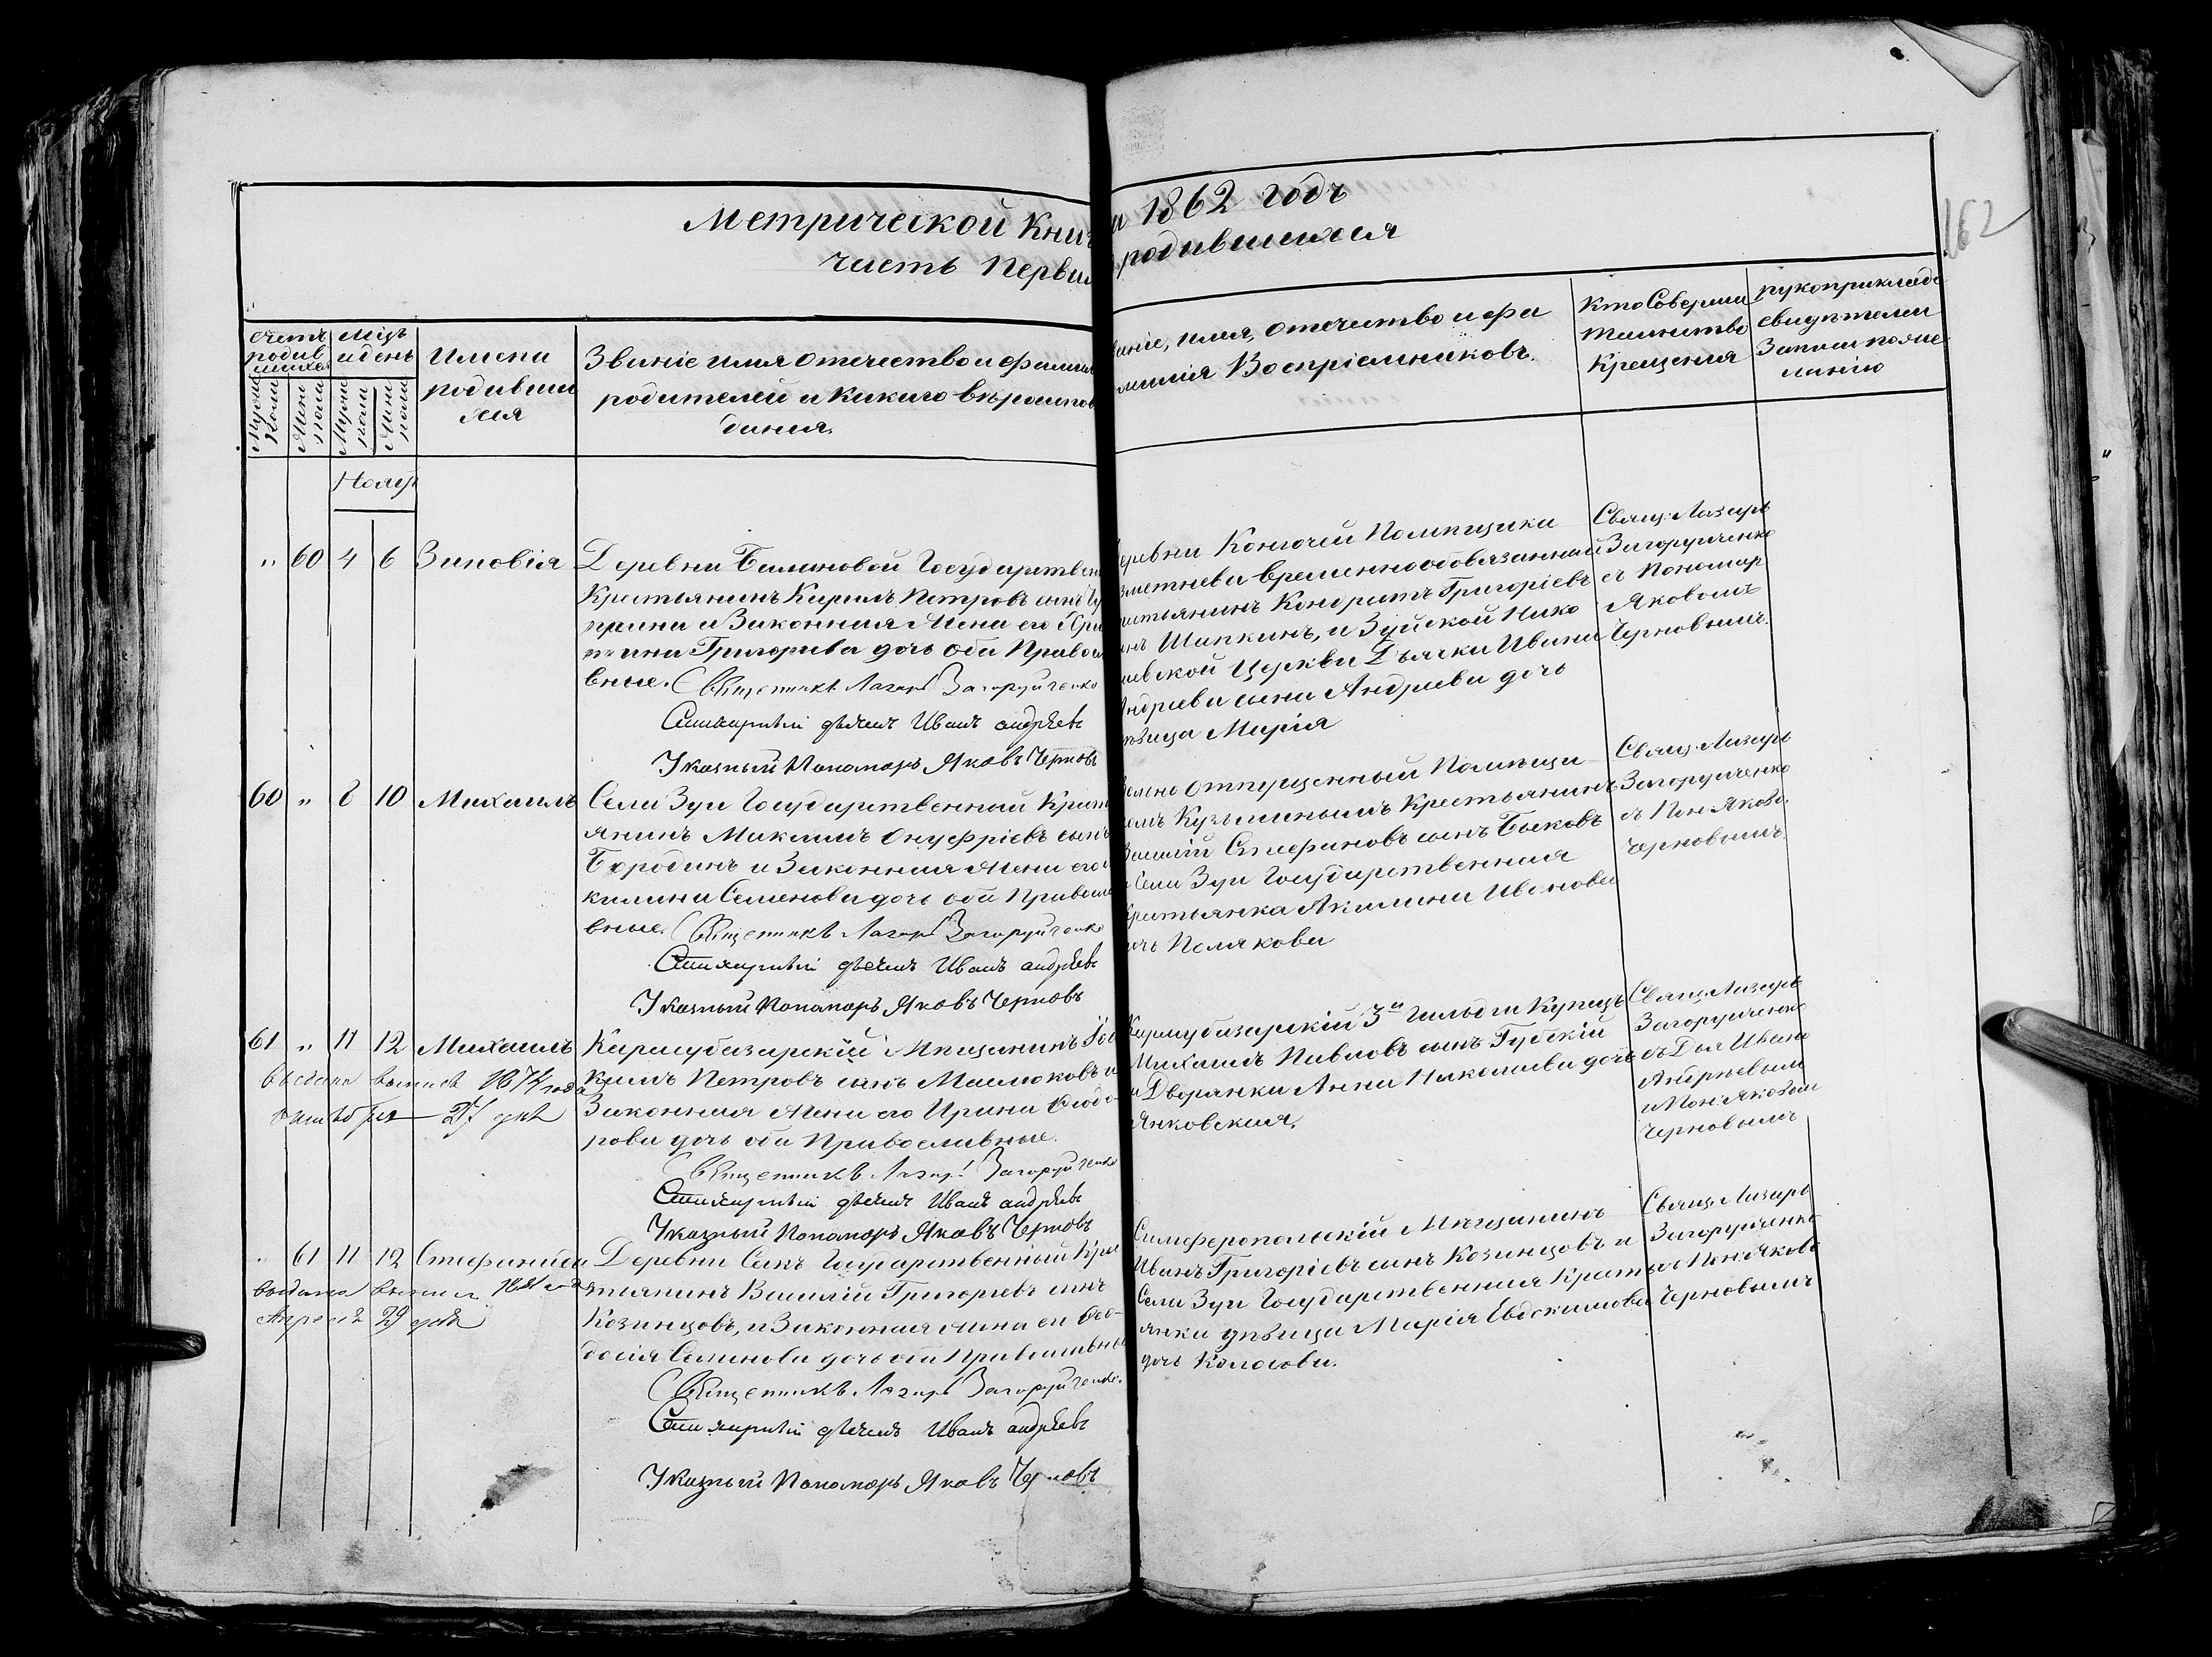 Метрической Книг
а 1862 годъ
часть Первая
родившихся
162
счетъ родив шихся
Мужск пола
Жен пола
мцъ и день
Мужс пола
Жен пола
Имена
родивши
хся
Званіе имя отчество и фамилія
родителей и какаго вѣроиспов
данія.
ваніе, имя, отчество и фа
милія Воспріемниковъ.
Кто Соверши
таинство
Крещенія
рукоприкладс
свидѣтелей
Записи по же
ланію
Ноябр
" 60 4 6 Зиновія
Деревни Балановой Государствен
Крестьянинъ Кирилъ Петровъ сынъ
и Законная Жена его
Григорьева дочь оба Правосл
вные. Священникъ Лазарь Загоруйченко
Стихарный дьячекъ Иванъ андрѣевъ
Указный Пономарь Яковъ Черновъ
еревни Конючей Помѣщика
временнообязанный
стьянинъ Кондратъ Григорьевъ
нъ Шапкинъ, и Зуйской Нико
аевской Церкви Дьячка Ивана
Андреева сына Андреева дочь
ѣвица Марія
Свящ: Лазарь
Загоруйченко
съ Пономар
Яковомъ
Черновымъ.
60 " 8 10 Михаилъ
Села Зуи Государственный Крест
янинъ Максимъ Онуфріевъ сынъ
Бородинъ и Законная Жена его
килина Семенова дочь оба Правосла
вные. Священникъ Лазарь Загоруйченко
Стихарный дьячекъ Иванъ андрѣевъ
Указный Пономарь Яковъ Черновъ
отпущенный Помѣщи
омъ Кузьминымъ Крестьянинъ
Василій Стефановъ сынъ Быковъ
и Села Зуи Государственная
Крестьянка Акилина Иванова
очь Полякова
Свящ: Лазарь
Загоруйченко
съ Пон Яково
Черновымъ.
61 " 11 12 Михаилъ
выдана выпись 1874 года
октября 27 дня
Карасубазарскій Мѣщанинъ
кимъ Петровъ сынъ Маслюковъ и
Законная Жена его Ирина Ѳеодо
рова дочь оба Православные.
Священникъ Лазарь Загоруйченко
Стихарный дьячекъ Иванъ андрѣевъ
Указный Пономарь Яковъ Черновъ
Карасубазарскій 3й гильдіи Купецъ
Михаилъ Павловъ сынъ Губскій
и Дворянка Анна Николаева дочь
Янковская.
Свящ: Лазарь
Загоруйченко
съ Дья Ивано
Андреевым
и Пон: Яковом
Черновымъ
" 61 11 12 Стефанида
выдана выпись
Апреля 29 дня
Деревни Государственный Кре
стьянинъ Василій Григорьевъ сынъ
Козинцовъ, и Законная жена его Ѳео-
досія Семенова дочь оба Православны
Священникъ Лазарь Загоруйченко.
Стихарный дьячекъ Иванъ андрѣевъ
Указный Пономарь Яковъ Черновъ
Симферопольскій Мѣщанинъ
Иванъ Григоріевъ сынъ Козинцовъ и
Села Зуи Государственная Кресть
янка дѣвица Марія Евдокимова
дочь Колосова.
Свящ: Лазарь
Загоруйченко
съ Пон: Яково
Черновымъ